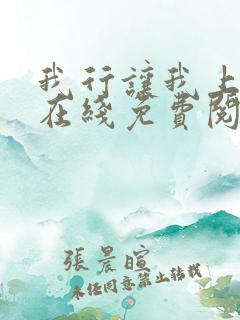 我行讓我上
在綫免費閱
張晨暄
未經同意禁止轉載